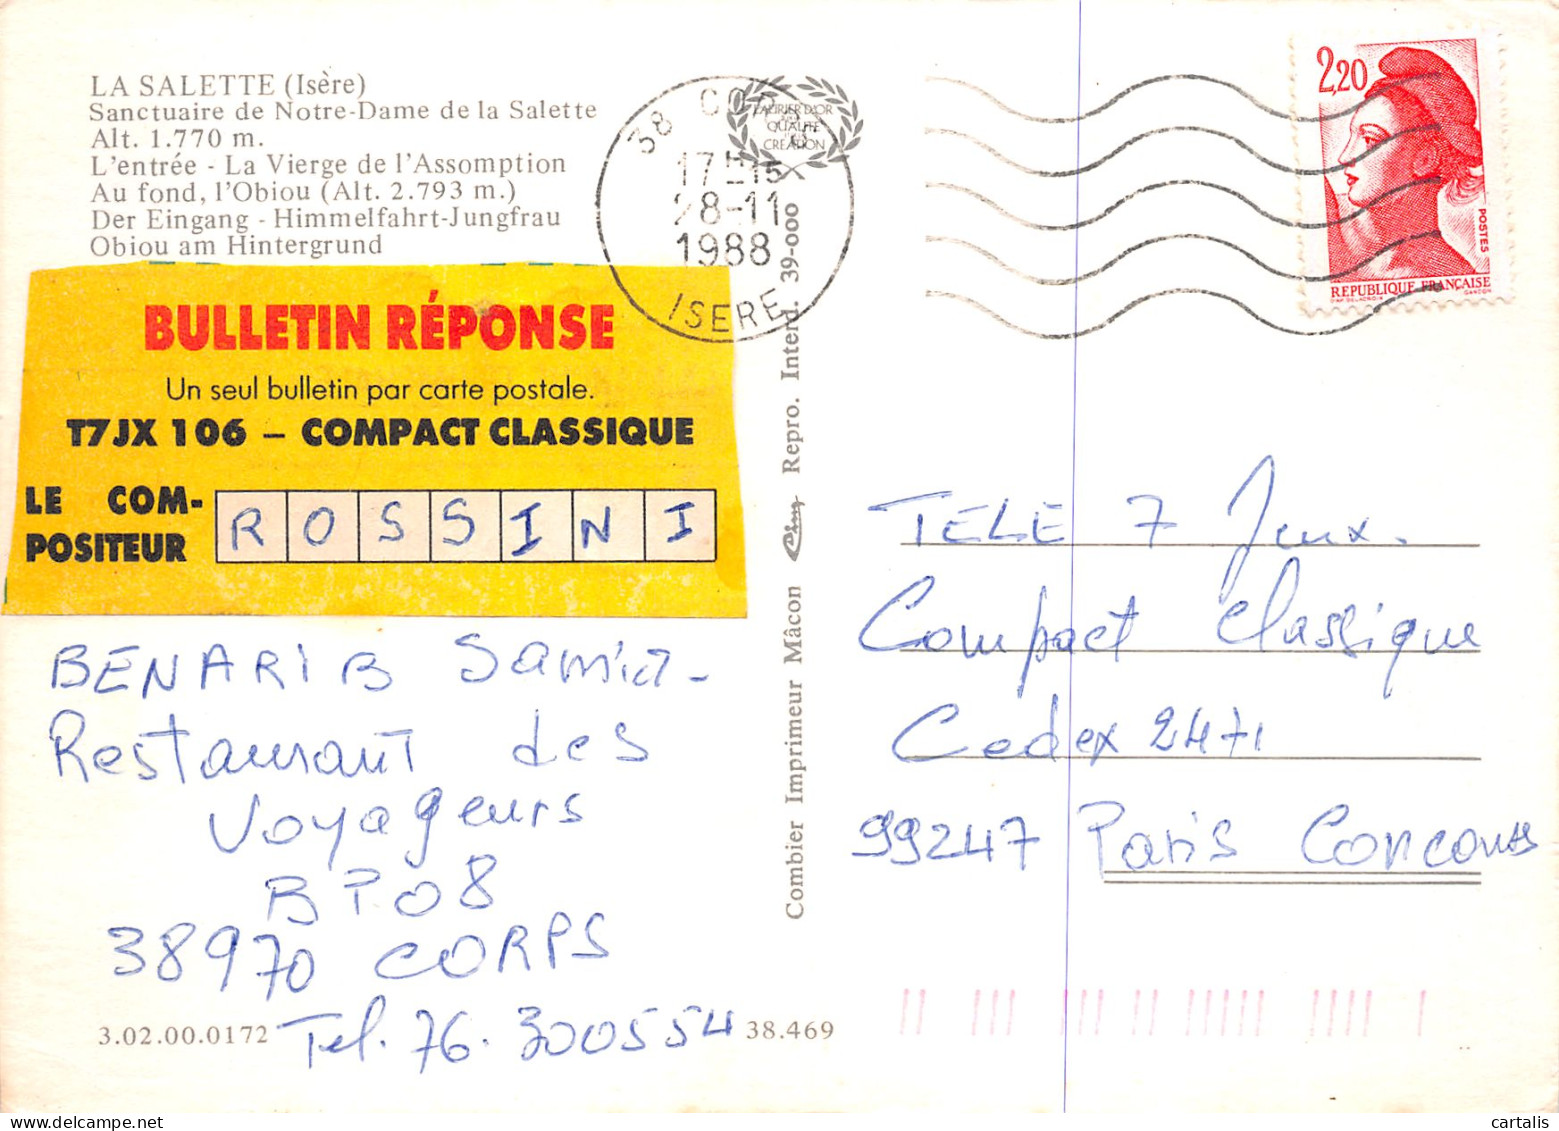 LA SALETTE (Isère)
Sanctuaire de Notre-Dame de la Salette
Alt. 1.770 m.
L'entrée - La Vierge de l'Assomption
Au fond, l'Obiou (Alt. 2.793 m.)
Der Eingang - Himmelfahrt-Jungfrau
Obiou am Hintergrund
BULLETIN RÉPONSE
Un seul bulletin par carte postale.
T7JX 106 – COMPACT CLASSIQUE
LE COM-
POSITEUR
ROSSINI
BENARIB Samia -
Restaurant des
Voyageurs
BP08
38970 CORPS
Tel. 76. 300554
3.02.00.0172
38.469
38 CORPS
17H15
28-11
1988
ISERE
LAURIER D'OR
QUALITÉ
CRÉATION
Combier Imprimeur Mâcon Cim Repro. Interd. 39-000
2,20
POSTES
REPUBLIQUE FRANÇAISE
D'AP. DELACROIX GANDON
TELE 7 Jeux.
Compact Classique
Cedex 2471
99247 Paris Concours
delcampe.net
cartalis